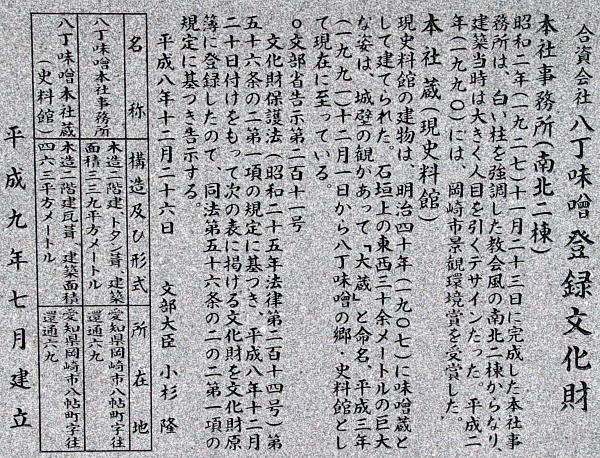 合資会社 八丁味噌 登録文化財
本社事務所(南北二棟)
昭和二年(一九二七)十一月二十三日に完成した本社事
務所は、白い柱を強調した教会風の南北二棟からなり、
建築当時は大きく人目を引くデザインだった。平成二
年(一九九〇)には、岡崎市景観環境賞を受賞した。
本社蔵(現史料館)
現史料館の建物は、明治四十年(一九〇七)に味噌蔵と
して建てられた。石垣上の東西三十余メートルの巨大
な姿は、城壁の観があって「大蔵」と命名、平成三年
(一九九一)十二月一日から八丁味噌の郷・史料館とし
て現在に至っている。
○文部省告示第二百十一号
文化財保護法(昭和二十五年法律第二百十四号)第
五十六条の二第一項の規定に基づき、平成八年十二月
二十日付けをもって次の表に掲げる文化財を文化財原
簿に登録したので、同法第五十六条の二の二第一項の
規定に基づき告示する。
平成八年十二月二十六日 文部大臣 小杉 隆
名称 構造及び形式 所在地
八丁味噌本社事務所 木造二階建、トタン葺、建築
面積三三九平方メートル 愛知県岡崎市八帖町字往
還通六九
八丁味噌本社蔵
(史料館) 木造二階建瓦葺、建築面積
四六三平方メートル 愛知県岡崎市八帖町字往
還通六九
平成九年七月建立